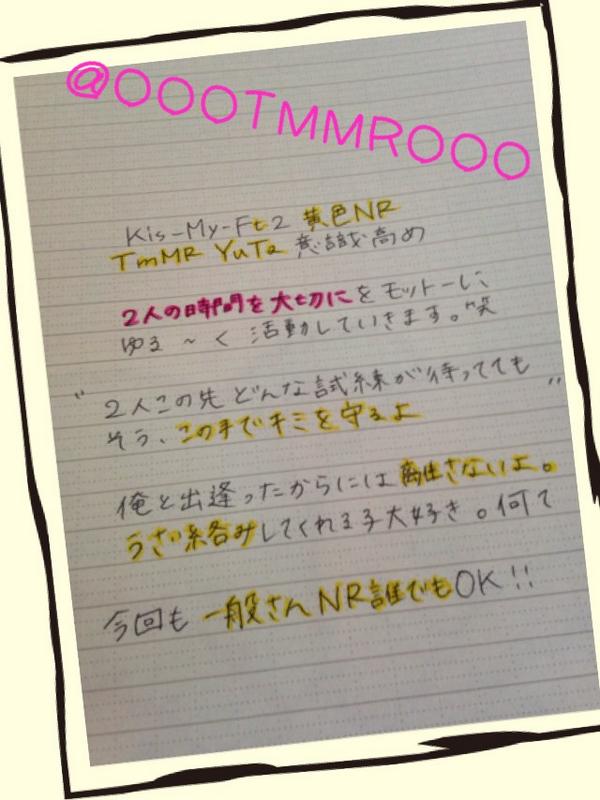 @OOOTMMROOO
Kis-My-Ft2 黄色NR
TmMR YuTa 意識高め
2人の時間を大切にをモットーに、
ゆる〜く活動していきます。笑
" 2人この先どんな試練が待ってても
そう、この手でキミを守るよ "
俺と出逢ったからには離さないよ。
うざい絡みしてくれる子大好き。何て
今回も 一般さん NR誰でもOK!!